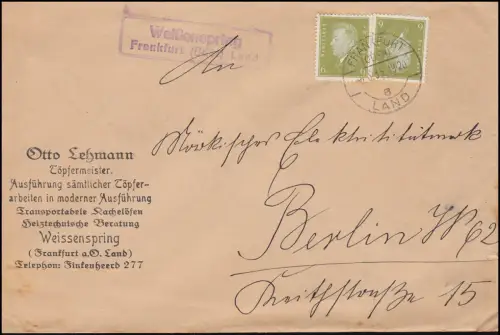 Weißenspring
Frankfurt (Oder) Land
FRANKFURT
LAND
a
An
Märkisches Elektritätswerk
Berlin W 62
Keithstraße 15
Otto Lehmann
Töpfermeister.
Ausführung sämtlicher Töpfer-
arbeiten in moderner Ausführung
Transportabele Kachelöfen
Heiztechnische Beratung
Weissenspring
(Frankfurt a.O. Land)
Telephon: Finkenheerd 277